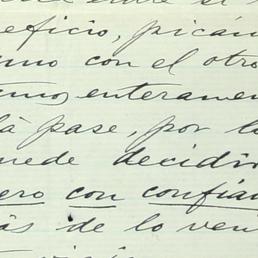 eficio, picán
uno con el otro
amos enteramen
là pase, por lo
uede decidir
ero con confian
ás de lo ven